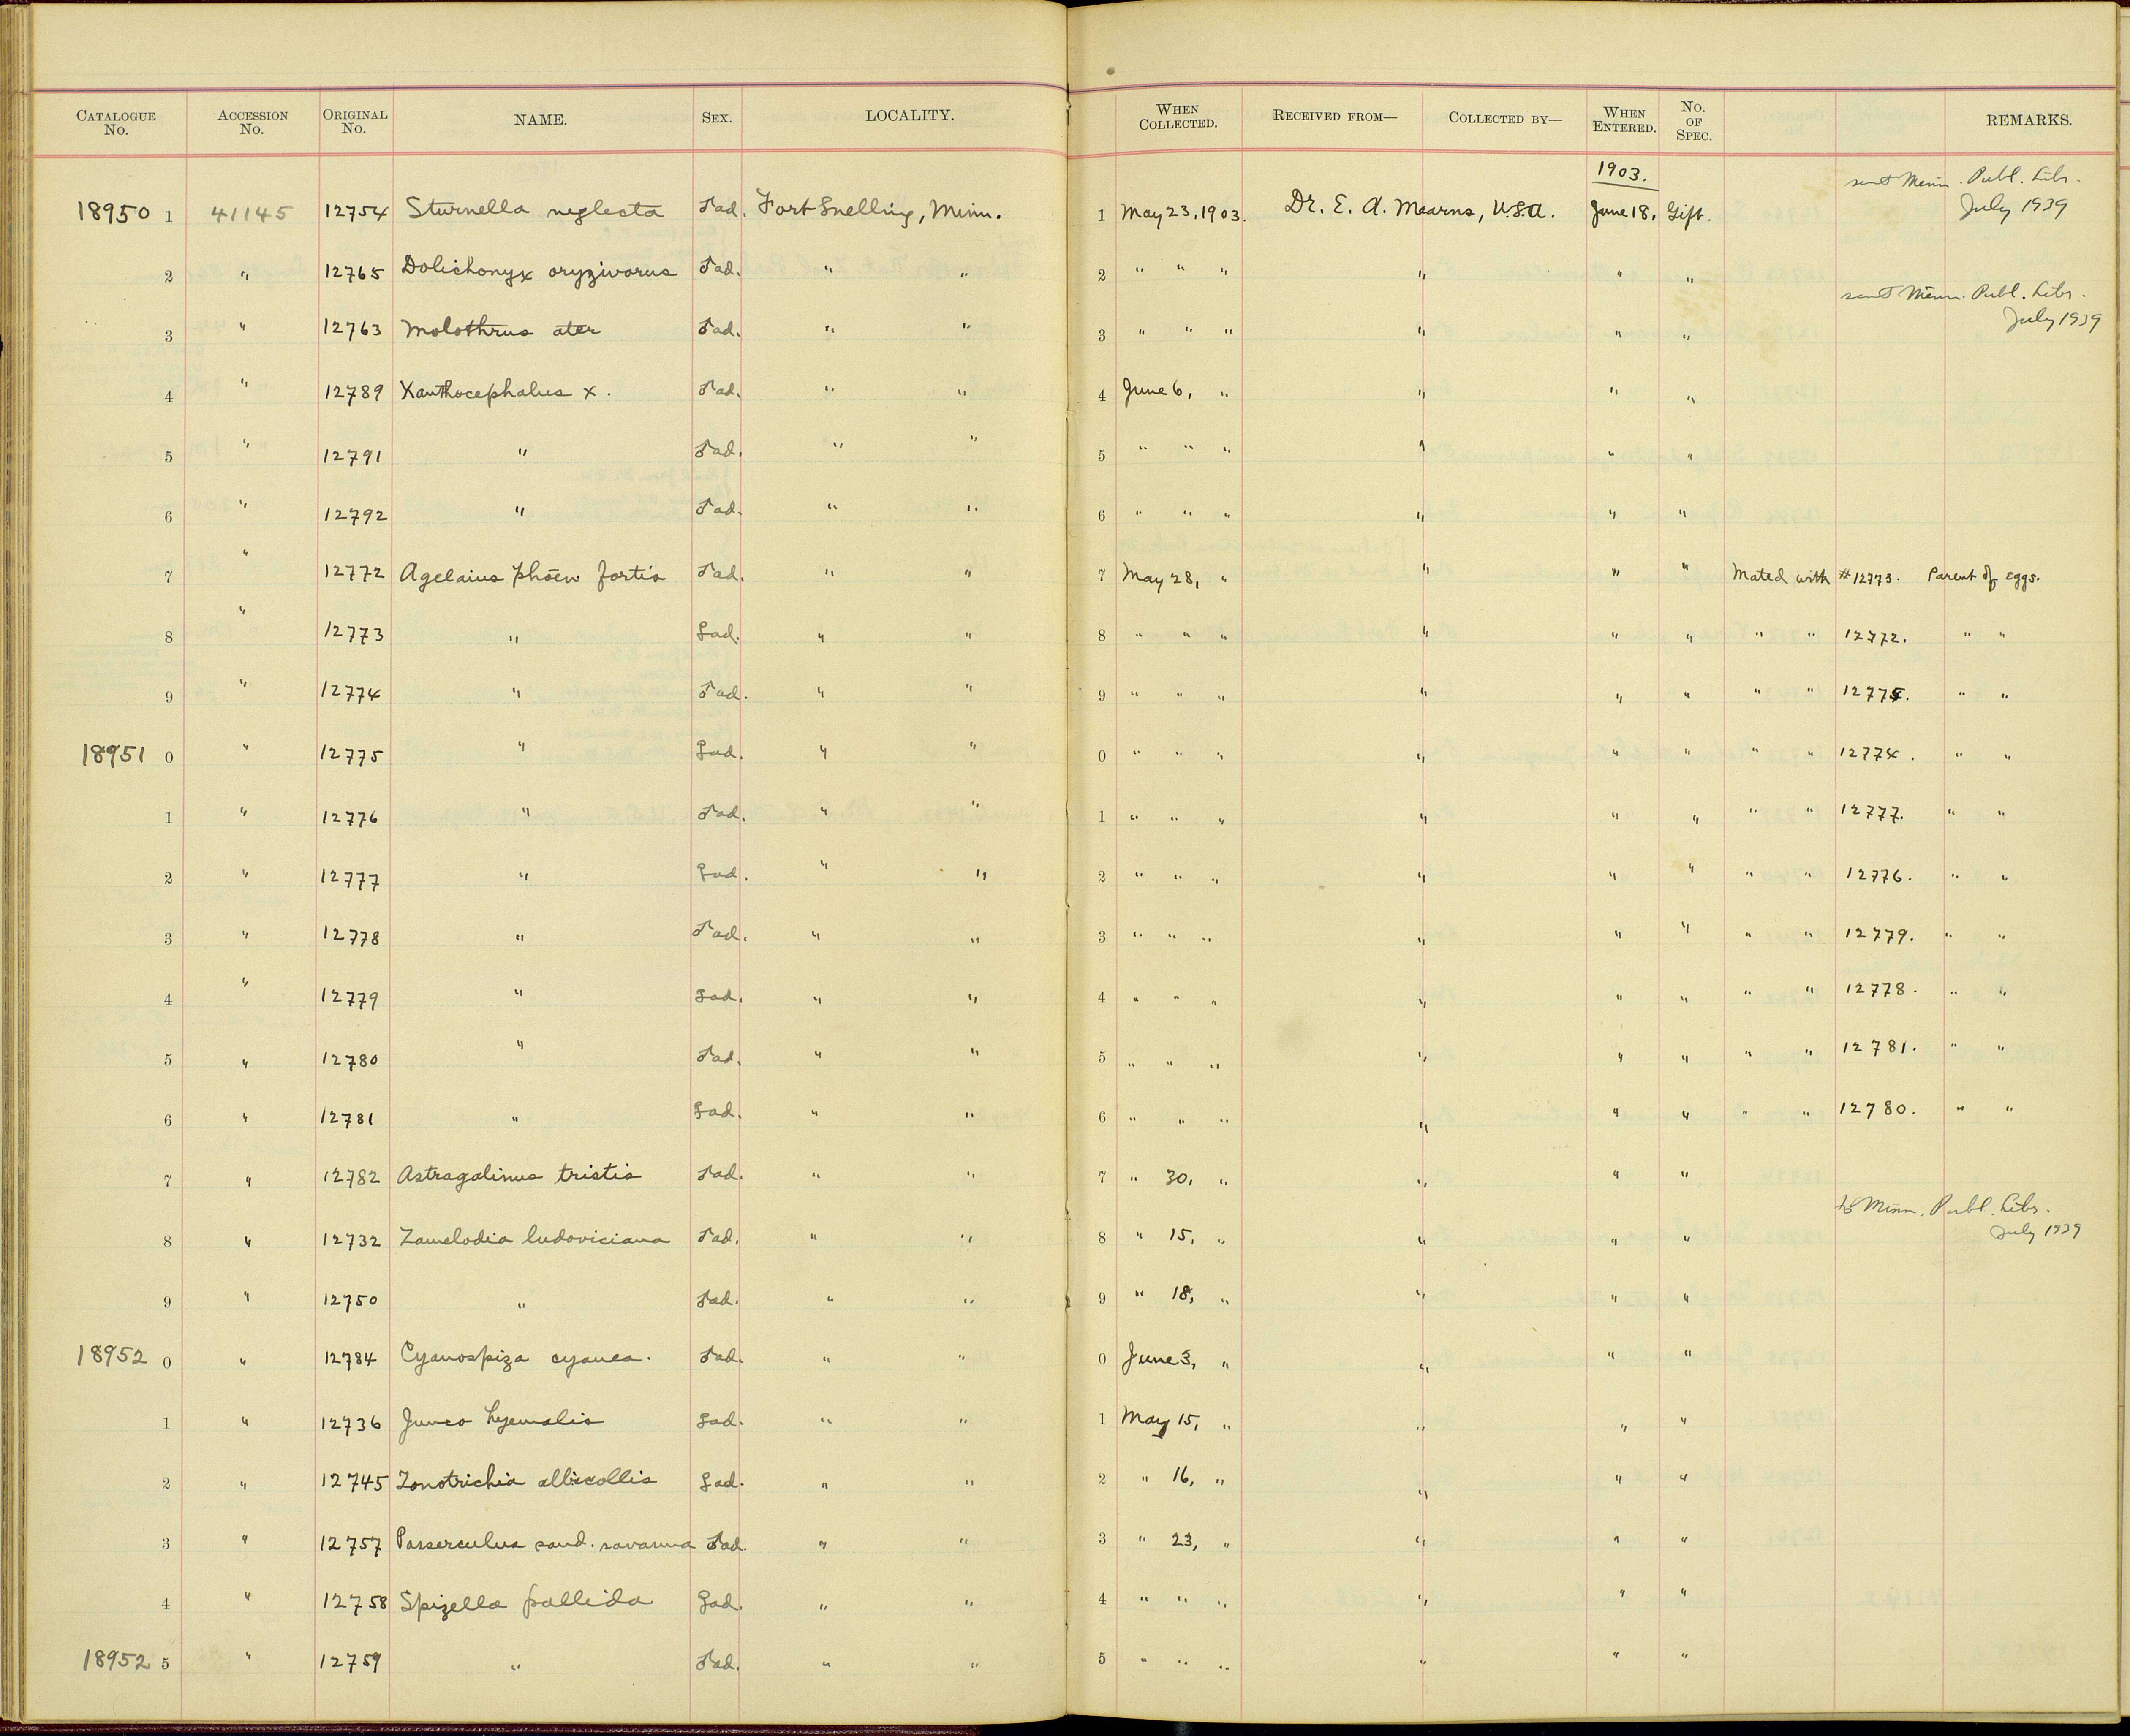 CATALOGUE No. ACCESSION No. ORIGINAL No. NAME. SEX. LOCALITY. WHEN COLLECTED. RECEIVED FROM— COLLECTED BY— WHEN ENTERED. No. OF SPEC. REMARKS.
1903.
sent Minn. Publ. Libr.
18950 1 41145 12754 Sturnella neglecta ♂ad. Fort Snelling, Minn. 1 May 23, 1903. Dr. E. A. Mearns, U.S.A. June 18, Gift. July 1939
2 " 12765 Dolichonyx oryzivorus ♂ad. " " 2 " " " " " "
sent Minn. Publ. Libr.
July 1939
3 " 12763 Molothrus ater ♂ad. " " 3 " " " " " "
4 " 12789 Xanthocephalus x. ♂ad. " " 4 June 6, " " " "
5 " 12791 " ♂ad. " " 5 " " " " " "
6 " 12792 " ♂ad. " " 6 " " " " " "
7 " 12772 Agelaius phoen fortis ♂ad. " " 7 May 28, " " " " Mated with #12773. Parent of eggs.
8 " 12773 " ♀ad. " " 8 " " " " " " " " 12772. " "
9 " 12774 " ♂ad. " " 9 " " " " " " " " 12775. " "
18951 0 " 12775 " ♀ad. " " 0 " " " " " " " " 12774. " "
1 " 12776 " ♂ad. " " 1 " " " " " " " " 12777. " "
2 " 12777 " ♀ad. " " 2 " " " " " " " " 12776. " "
3 " 12778 " ♂ad. " " 3 " " " " " " " " 12779. " "
4 " 12779 " ♀ad. " " 4 " " " " " " " " 12778. " "
5 " 12780 " ♂ad. " " 5 " " " " " " " " 12781. " "
6 " 12781 " ♀ad. " " 6 " " " " " " " " 12780. " "
7 " 12782 Astragalinus tristis ♂ad. " " 7 " 30, " " " "
to Minn. Publ. Libr.
July 1939
8 " 12732 Zamelodia ludoviciana ♂ad. " " 8 " 15, " " " "
9 " 12750 " ♂ad. " " 9 " 18, " " " "
18952 0 " 12784 Cyanospiza cyanea. ♂ad. " " 0 June 3, " " " "
1 " 12736 Junco hyemalis ♀ad. " " 1 May 15, " " " "
2 " 12745 Zonotrichia albicollis ♀ad. " " 2 " 16, " " " "
3 " 12757 Passerculus sand. savanna ♂ad. " " 3 " 23, " " " "
4 " 12758 Spizella pallida ♀ad. " " 4 " " " " " "
18952 5 " 12759 " ♂ad. " " 5 " " " " " "